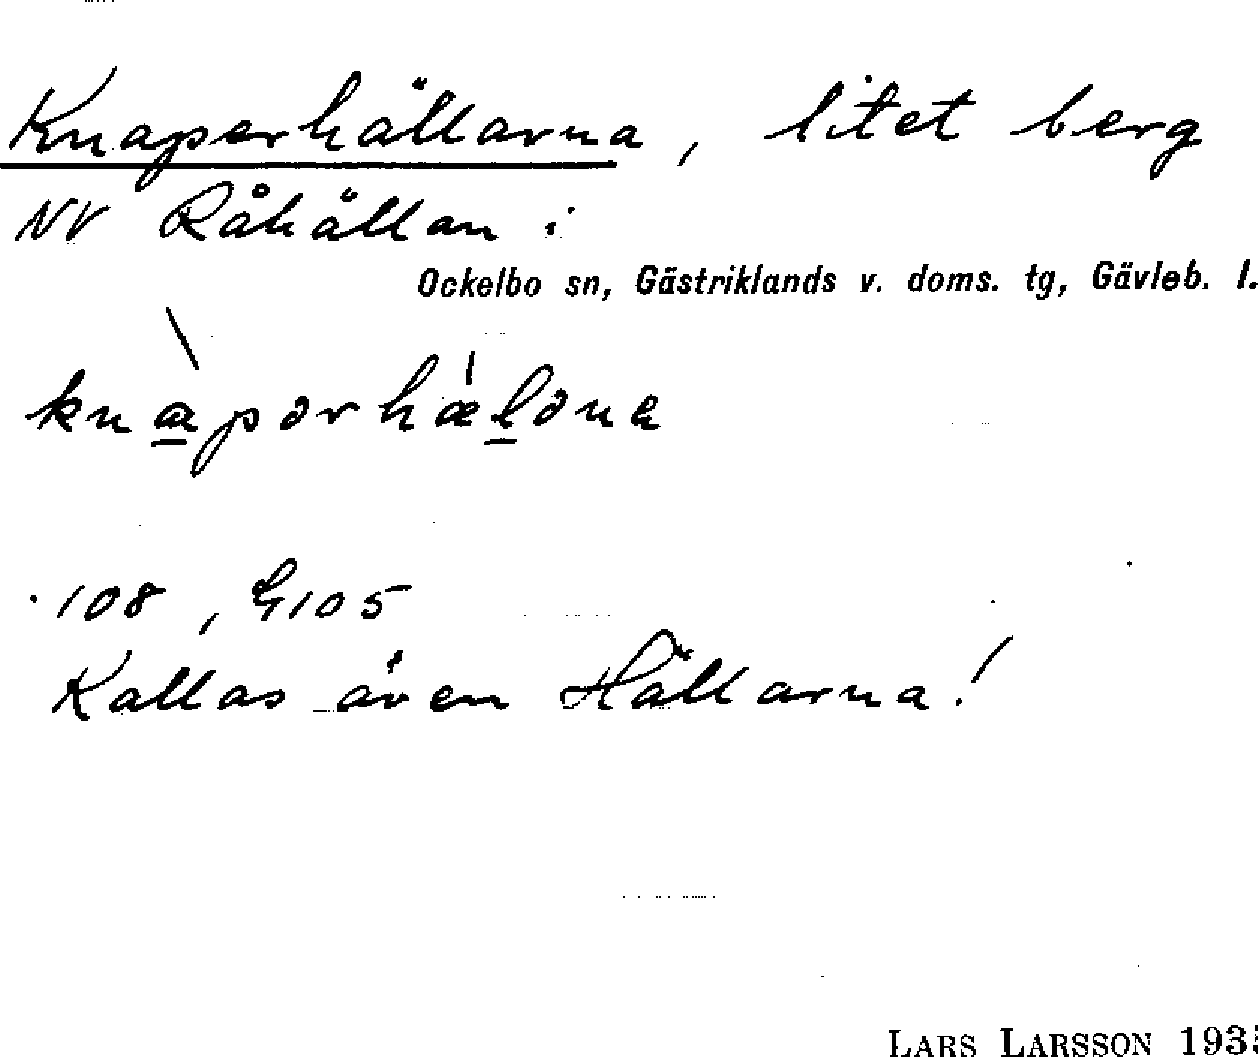 Knaperhällarna, litet berg
NV Råhällan i
Ockelbo sn, Gästriklands v. doms. tg, Gävleb. l.
knàpərhǽləna
108, G105
Kallas även Hällarna!
LARS LARSSON 193